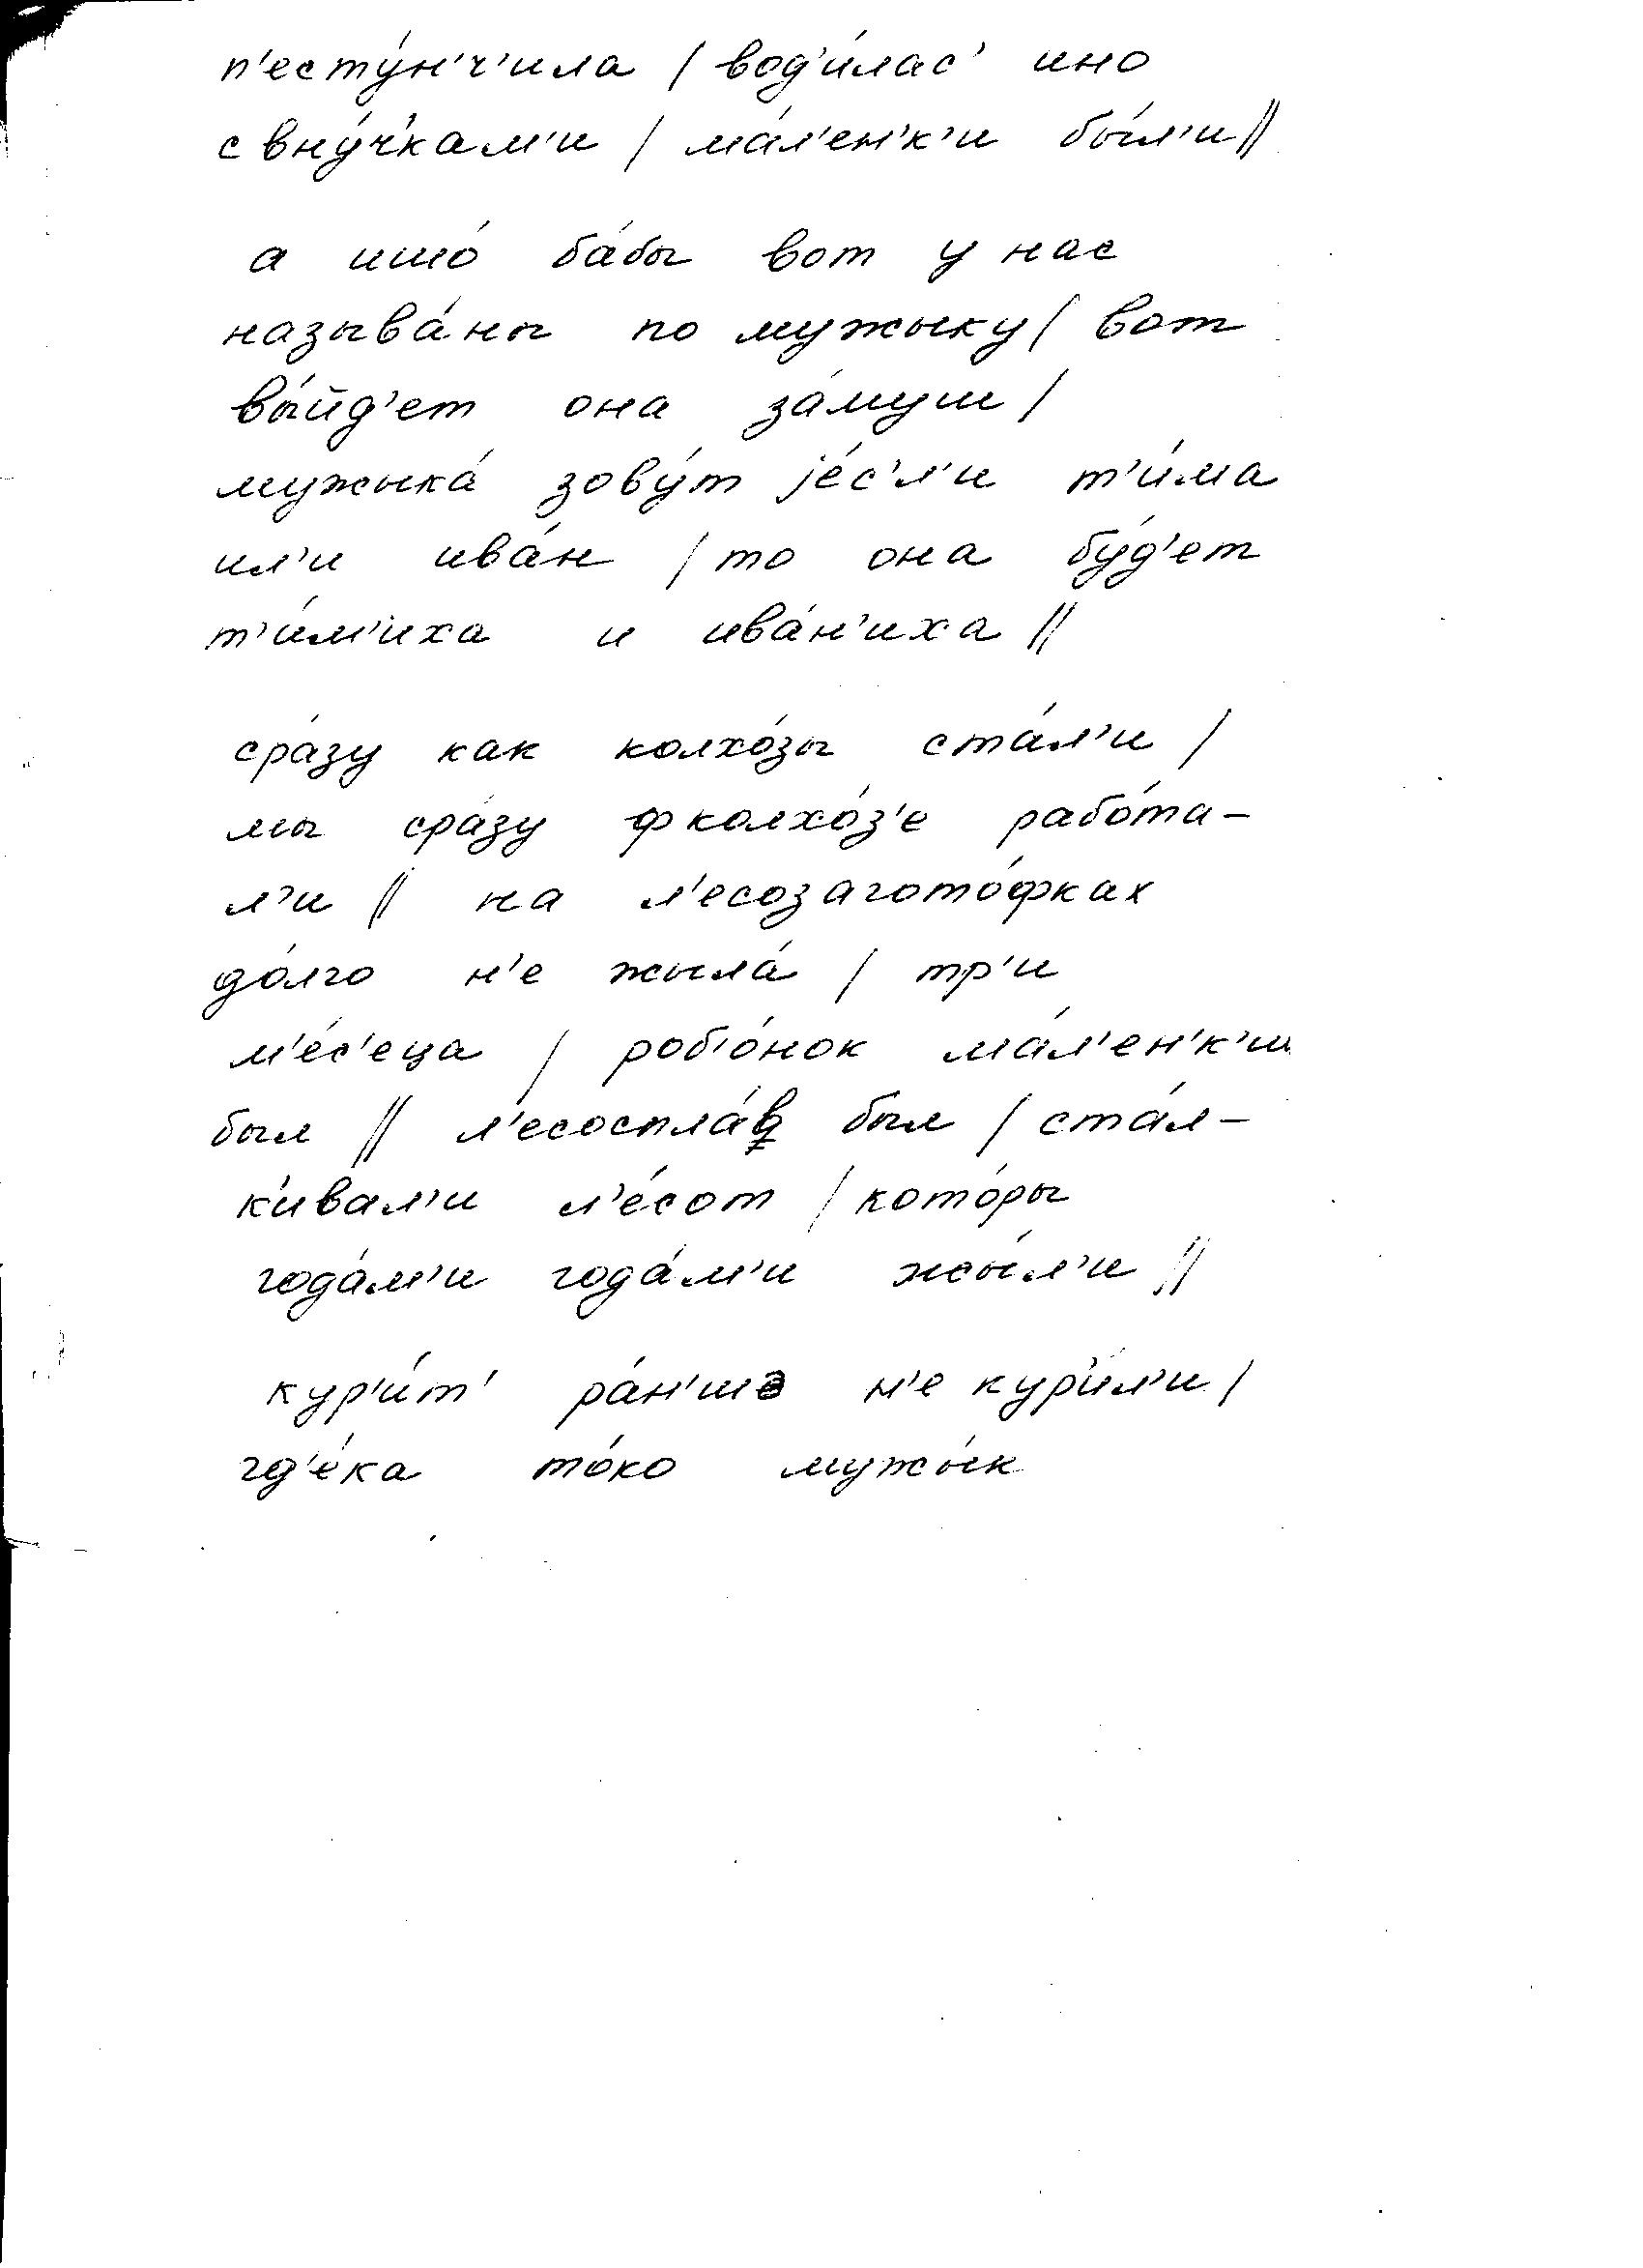 п'есту́н'ч'ила / вод'и́лас' ино
с вну́чкам'и / ма́л'ен'к'и бы́л'и //
а ишо́ ба́бы вот у нас
называ́ны по мужыку / вот
вы́йд'ет она за́муш /
мужыка́ зову́т jе́с'л'и т'и́ма
ил'и ива́н / то она бу́д'ет
т'и́м'иха и ива́н'иха //
сра́зу как колхо́зы ста́л'и /
мы сра́зу ф колхо́з'е рабо́та-
л'и // на л'есозагото́фках
до́лго н'е жыла́ / тр'и
м'е́с'еца / роб'о́нок ма́л'ен'к'и
был // л'есоспла́в был / ста́л-
к'ивал'и л'е́сот / кото́ры
года́м'и года́м'и жы́л'и //
кур'и́т' ра́н'шэ н'е кур'и́л'и /
гд'е́ка то́ко мужы́к